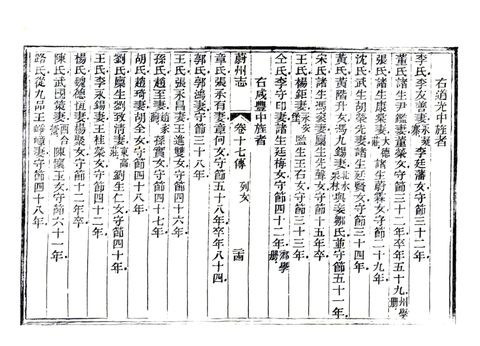 右道光中旌者
李氏李友善妻永寧李廷藩女守節三十二年
董氏諸生尹鑑妻董榮女守節三十二年卒年五十九州學冊
張氏諸生康棠妻大德莊諸生蔚霖女守節二十九年
沈氏武生胡榮先妻諸生延賢女守節三十四年
黃氏黃階升女馮九錫妻北水泉與妾鄒氏並守節五十一年
宋氏諸生馮褎妻廩生守聲女守節十五年卒
王氏楊鉅妻監生王右女守節三十三年
仝氏李守印妻諸生廷梅女守節三十二年鄉學冊
右咸豐中旌者
蔚州志 卷十七傳 列女 三十四
章氏張承有妻章何女守節五十八年卒年八十四
郭氏郭鴻妻守節三十八年
王氏張永昌妻王進雙女守節四十六年
孫氏趙至妻孫寶女守節四十七年
胡氏趙琦妻胡全女守節四十年
劉氏廩生劉致清妻東高莊劉生仁女守節四十年
王氏李永錫妻王桂榮女守節四十二年
楊氏魏德恆妻楊聚女守節四十二年卒
陳氏武國策妻西合陳寶玉女守節六十一年
路氏從九品王崢嶸妻守節四十八年